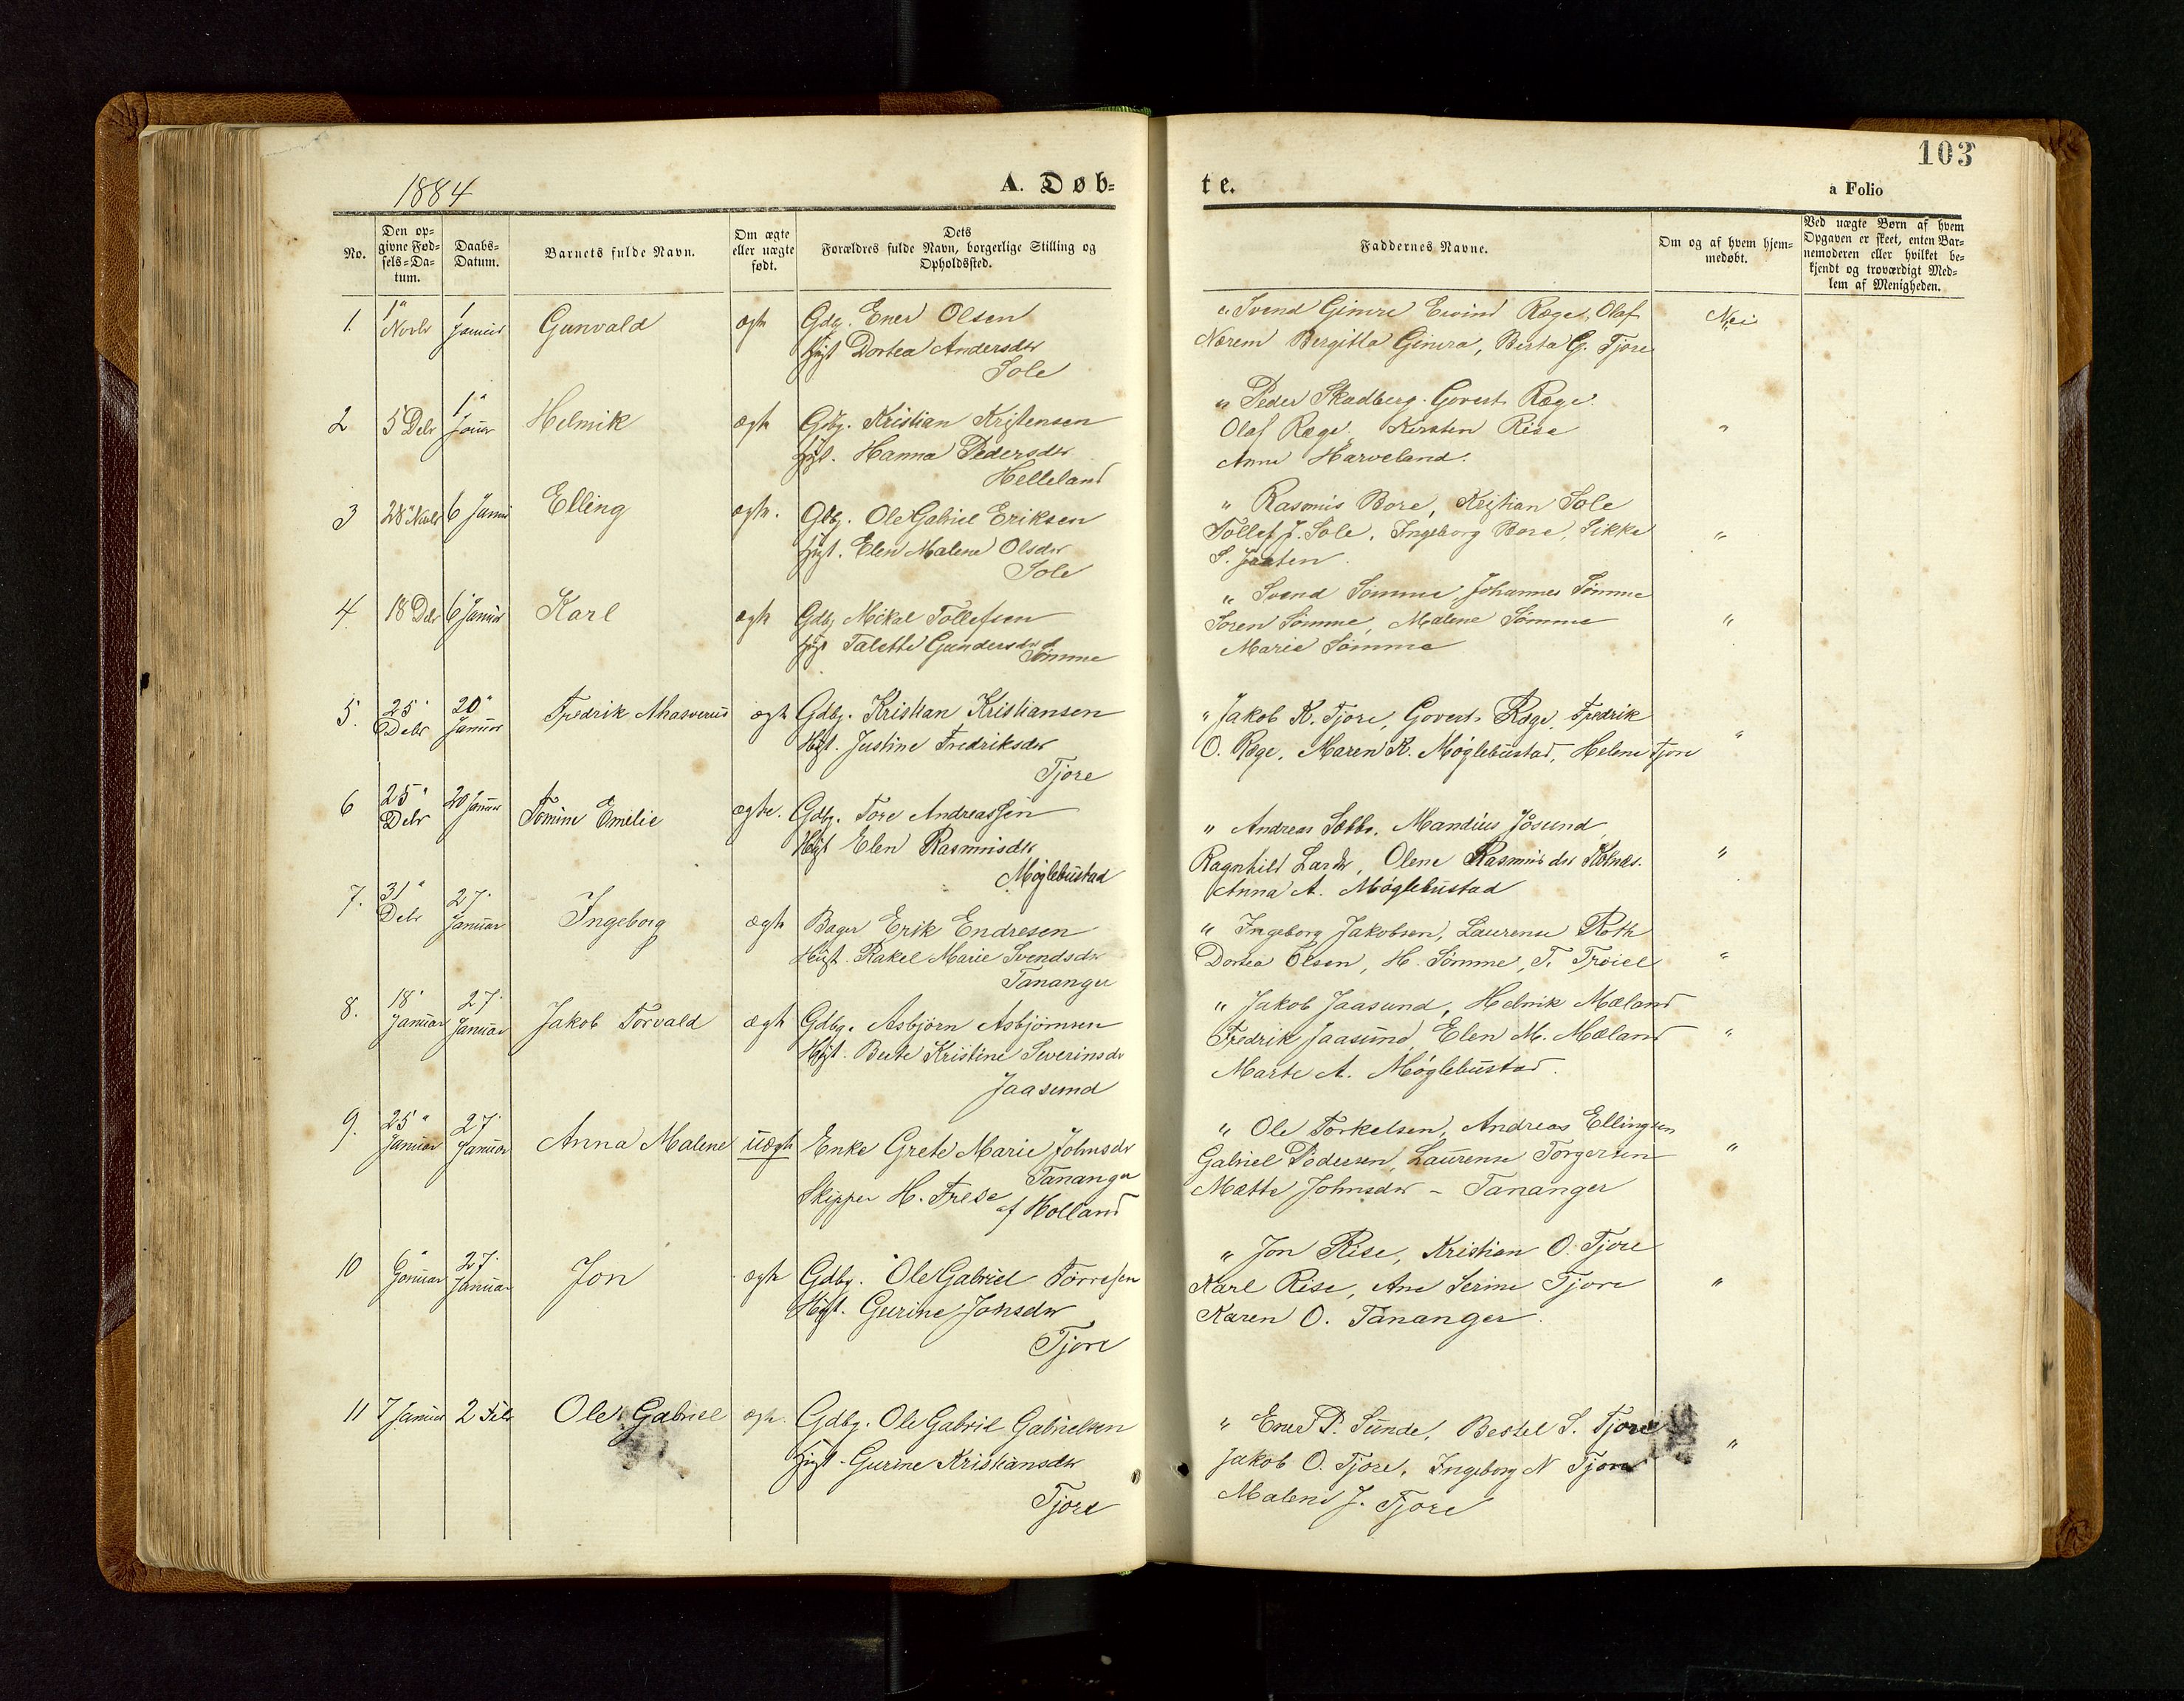 103
1884
A. Døb-
te.
a Folio
No.
Den op-
givne Fød-
sels-Da-
tum.
Daabs-
Datum.
Barnets fulde Navn.
Om ægte
eller uægte
født.
Dets
Forældres fulde Navn, borgerlige Stilling og
Opholdssted.
Faddernes Navne.
Om og af hvem hjem-
medøbt.
Ved uægte Børn af hvem
Opgaven er skeet, enten Bar-
nemoderen eller hvilket be-
kjendt og troværdigt Med-
lem af Menigheden.
1. 1" Novbr 1 Januar Gunvald ægte Gdbg. Ener Olsen
Hust Dortea Andersdtr
Sole
" Svend Gimre Eivind Ræge, Olaf
Nærem Bergitta Gimra, Berta G. Tjore
Nei
2 5 Debr 1" Januar Helmik ægte Gdbg. Kristian Kristensen
Hust. Hanna Pedersdtr
Helleland
" Peder Skadberg. Govert Ræge.
Olaf Ræge. Kirsten Rise "
Anne Harveland.
3 28" Novbr 6 Januar Elling ægte. Gdbg. Ole Gabriel Eriksen
Hust. Elen Malene Olsdtr
Sole
" Rasmus Bore, Kristian Sole
Tollef J. Sole, Ingeborg Bore, Sikke "
S. Jaaten.
4. 18 Debr 6 Januar Karl ægte Gdbg Mikal Tollefsen
Hust Talette Gundersdtr
Sømme
" Svend Sømme, Johannes Sømme
Søren Sømme, Malene Sømme "
Marie Sømme
5. 25" Debr 20" Januar Fredrik Ahasverus ægte Gdbg. Kristian Kristiansen
Hust. Justine Fredriksdtr
Tjore
" Jakob K. Tjore, Govert Ræge, Fredrik
O. Ræge, Maren K. Møglebustad, Helene Tjore "
6 25" Debr 20 Januar Tomine Emilie ægte. Gdbg. Tore Andreassen
Hust Elen Rasmusdtr
Møglebustad
" Andreas Mandius Jåsund
Ragnhild Larsdtr, Olene Rasmusdtr Kolnes. "
Anna A. Møglebustad
7. 31" Debr 27. Januar Ingeborg ægte Bager Erik Endresen
Hust. Rakel Marie Svendsdtr
Tananger
" Ingeborg Jakobsen, Laurense Roth
Dortea Olsen, H. Sømme, T. "
8. 18" Januar 27. Januar Jakob Torvald ægte Gdbg. Asbjørn Asbjørnsen
Hust. Berte Kristine Severinsdtr
Jaasund
" Jakob Jaasund, Helmik Mæland
Fredrik Jaasund, Elen M. Mæland "
Marte A. Møglebustad.
9. 25" Januar 27. Januar Anna Malene uægte Enke Grete Marie Johnsdtr
Tananger
Skipper H. Frese af Holland
" Ole Torkelsen, Andreas Ellingsen
Gabriel Pedersen, Laurense Torgersen "
Mætte Johnsdtr - Tananger
10 6" Januar 27. Januar Jon ægte Gdbg. Ole Gabriel Torresen
Hust. Gurine Jonsdtr
Tjore
" Jon Rise, Kristian O. Tjore
Karl Rise, Ane Serine Tjore "
Karen O. Tananger.
11 7 Januar 2 Febr Ole Gabriel ægte. Gdbg. Ole Gabriel Gabrielsen
Hust. Gurine Kristiansdtr
Tjore
" Ener P. Sunde, Bertel S. Tjore
Jakob O. Tjore, Ingeborg N Tjore "
Malene J. Tjore